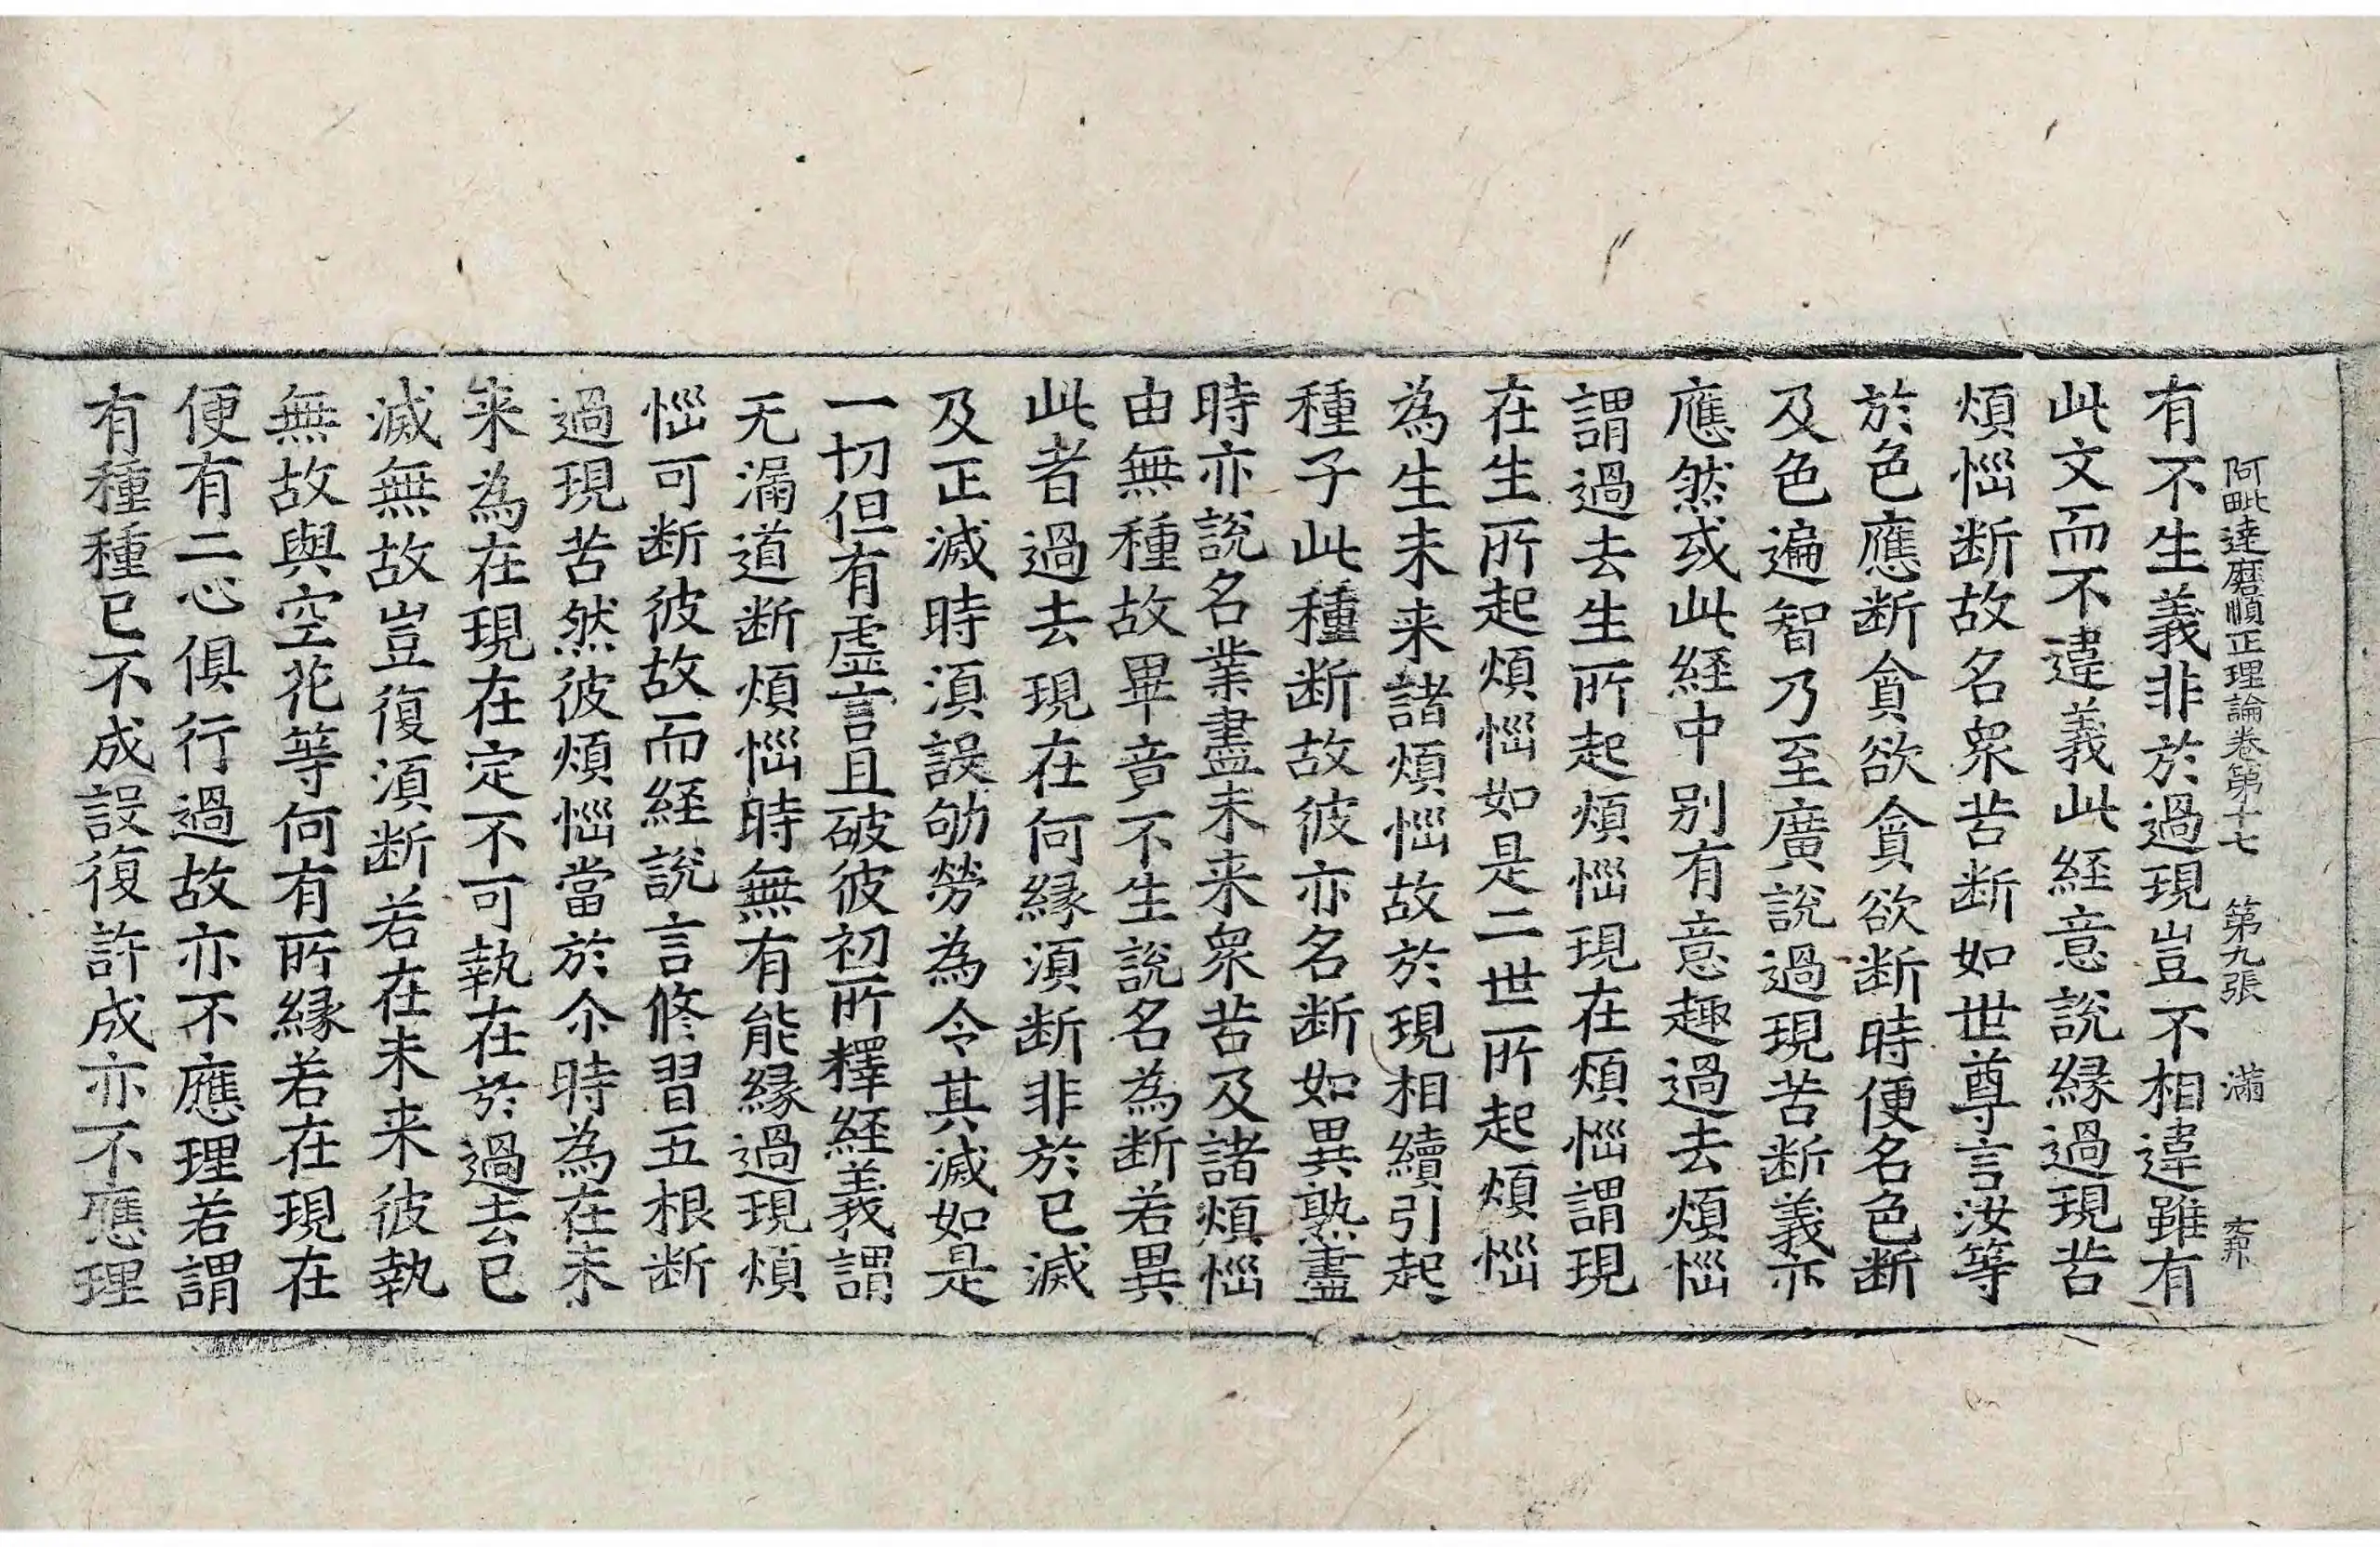 阿毗達磨順正理論卷第十七 第九張 滿
有不生義非於過現豈不相違雖有
此文而不違義此経意說緣過現苦
煩惱断故名衆苦断如世尊言汝等
於色應断貪欲貪欲断時便名色断
及色遍智乃至廣說過現苦断義亦
應然或此経中别有意趣過去煩惱
謂過去生所起煩惱現在煩惱謂現
在生所起煩惱如是二世所起煩惱
為生未来諸煩惱故於現相續引起
種子此種断故彼亦名断如異熟盡
時亦說名業盡未来衆苦及諸煩惱
由無種故畢竟不生說名為断若異
此者過去現在何緣須断非於已滅
及正滅時須設劬勞為令其滅如是
一切但有虛言且破彼初所釋経義謂
无漏道断煩惱時無有能緣過現煩
惱可断彼故而経說言修習五根断
過現苦然彼煩惱當於尒時為在未
来為在現在定不可執在於過去已
滅無故豈復須断若在未来彼執
無故與空花等何有所緣若在現在
便有二心俱行過故亦不應理若謂
有種種已不成設復許成亦不應理